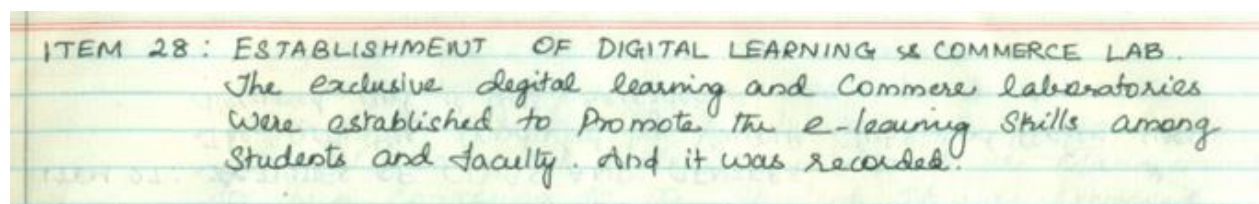 ITEM 28 : ESTABLISHMENT OF DIGITAL LEARNING & COMMERCE LAB.
The exclusive degital learning and Commere laboratories
were established to Promote the e-learning Skills among
Students and faculty. And it was recorded.